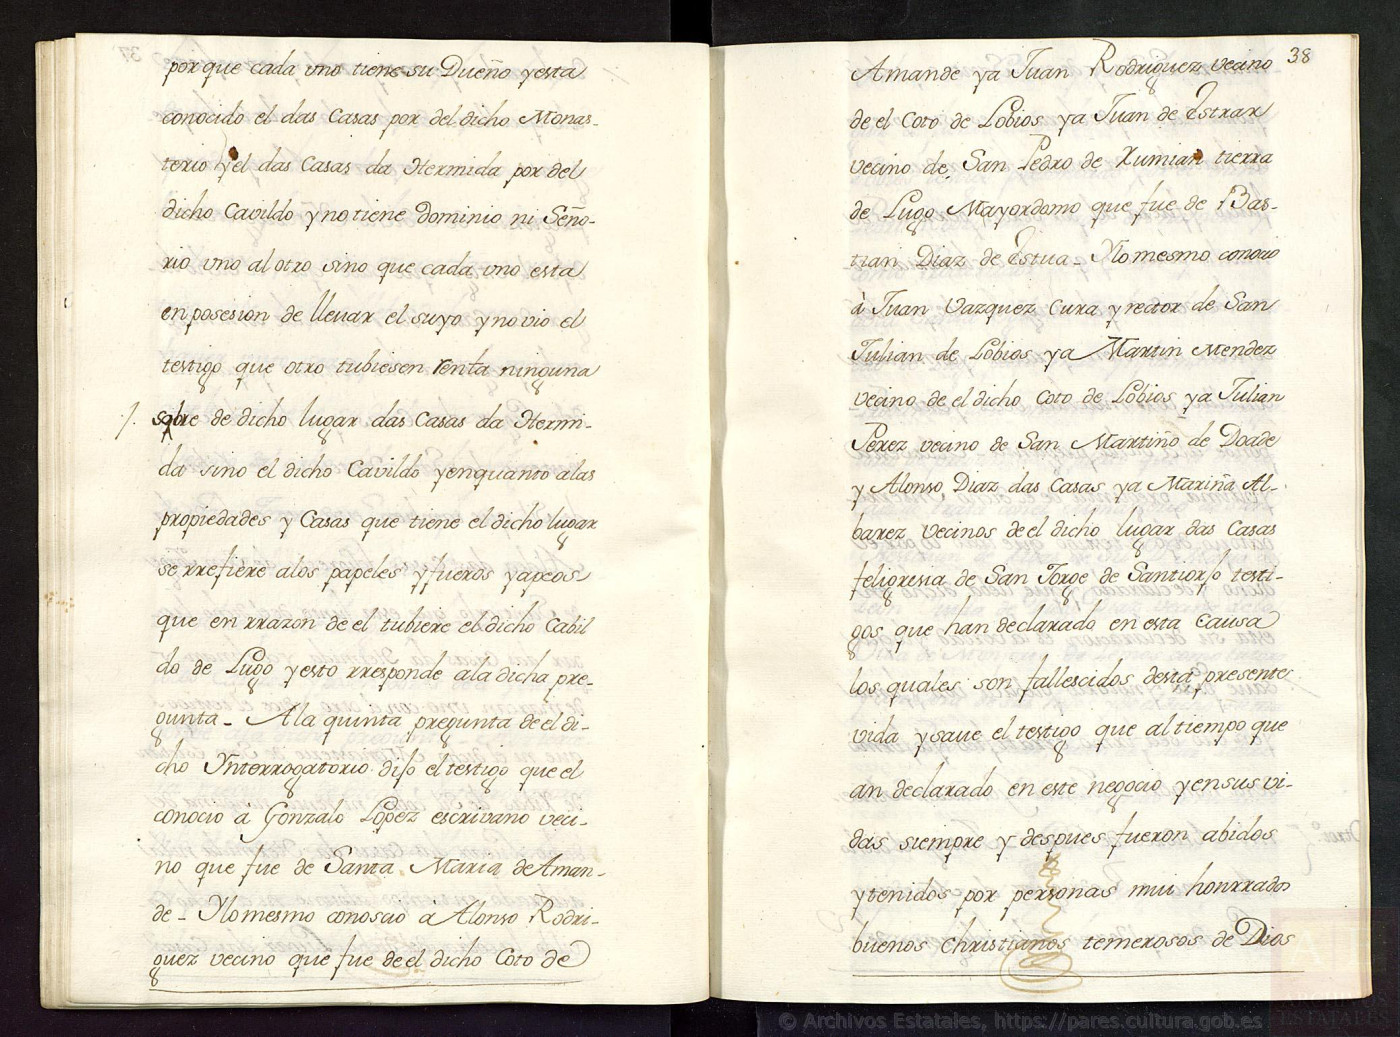 porque cada uno tiene su Dueño y esta
conocido el das Casas por del dicho Monas-
terio y el das Casas da Hermida por del
dicho Cavildo y no tiene Dominio ni Seño-
rio uno al otro sino que cada uno esta
en posesion de llevar el suyo y no vio el
testigo que otro tubiesen renta ninguna
sobre de dicho lugar das Casas da Hermi-
da sino el dicho Cavildo y en quanto a las
propiedades y Casas que tiene el dicho lugar
se rrefiere a los papeles y fueros y apeos
que en rrazon de el tubiere el dicho Cabil
do de Lugo y esto rresponde a la dicha pre-
gunta - A la quinta pregunta de el di-
cho Ynterrogatorio dijo el testigo que el
conocio á Gonzalo Lopez escrivano veci-
no que fue de Santa Maria de Aman-
de - Ylo mesmo conoscio á Alonso Rodri-
guez vecino que fue de el dicho Coto de
38
Amande y a Juan Rodriguez vecino
de el Coto de Lobios y a Juan de Estrar
vecino de San Pedro de Xumian tierra
de Lugo Mayordomo que fue de Bas-
tian Diaz de Estua - Ylo mesmo conocio
à Juan Vazquez Cura y rector de San
Julian de Lobios y a Martin Mendez
vecino de el dicho Coto de Lobios y a Julian
Perez vecino de San Martiño de Doade
y Alonso Diaz das Casas y a Mariña Al-
barez Vecinos de el dicho lugar das Casas
feligresia de San Jorge de Santiorjo testi-
gos que han declarado en esta Causa
los quales son fallescidos desta presente
vida y save el testigo que al tiempo que
an declarado en este negocio y en sus vi-
das siempre y despues fueron abidos
y tenidos por personas mui honrrados
buenos Christianos temerosos de Dios
© Archivos Estatales, https://pares.cultura.gob.es